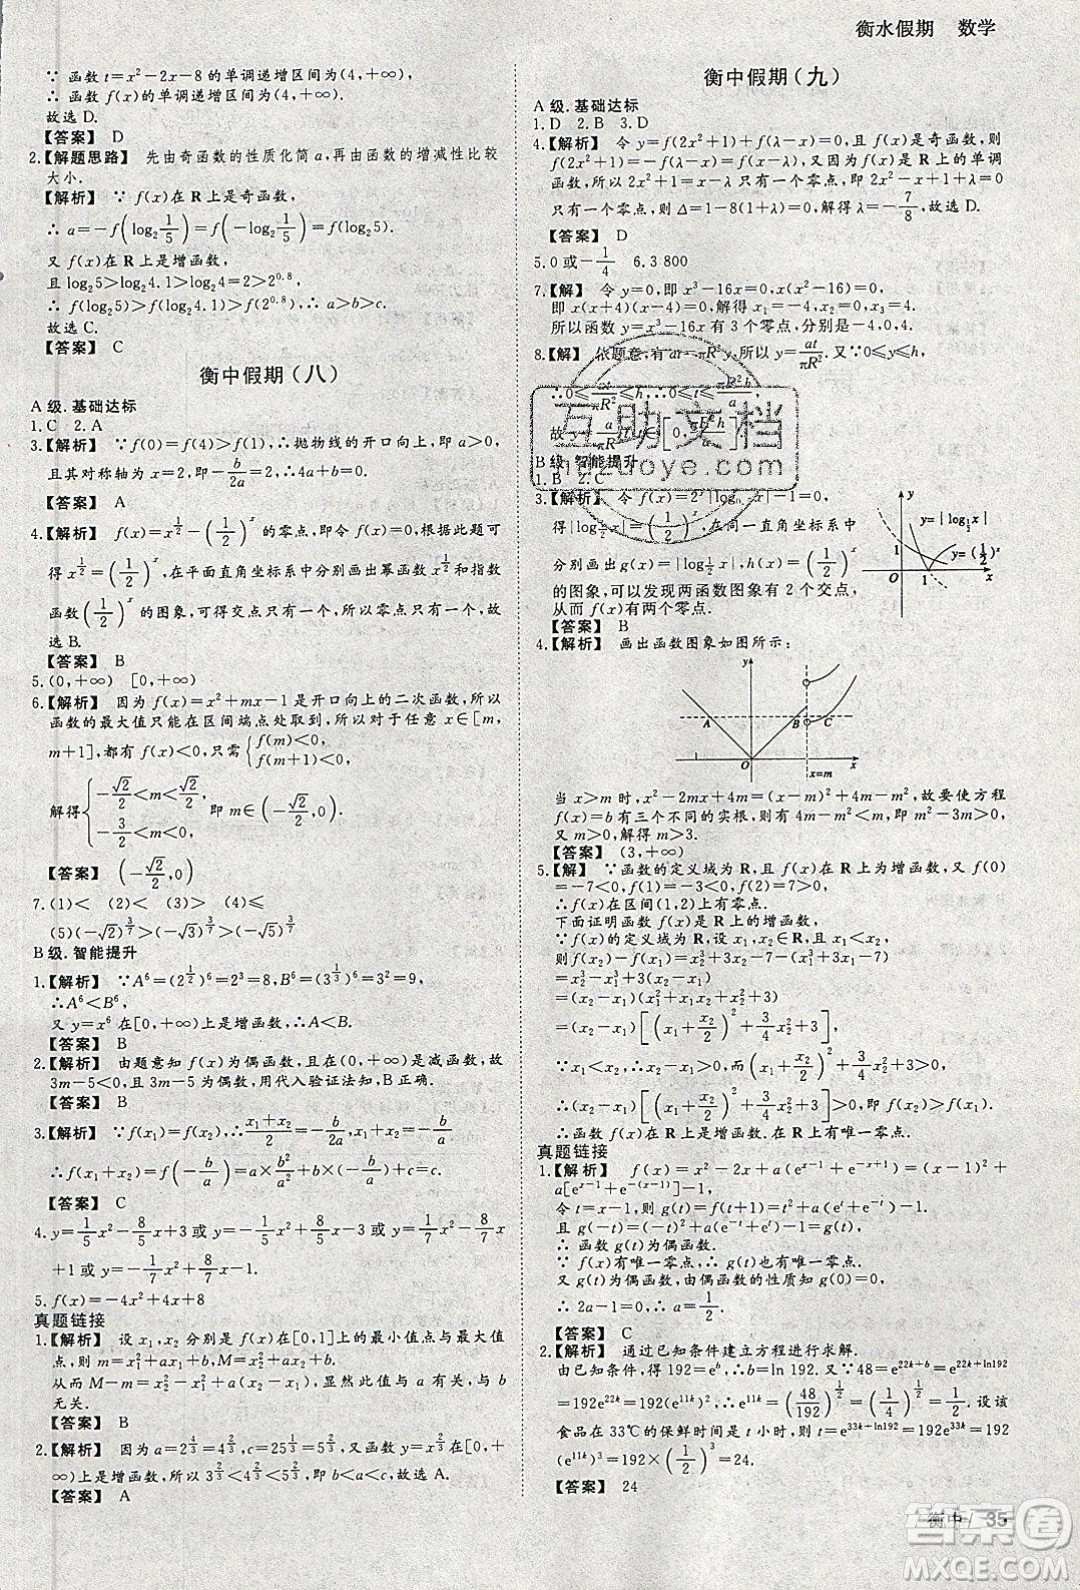 衡水假期 数学
∵ 函数 t=x²-2x-8 的单调递增区间为(4,+∞),
∴ 函数 f(x)的单调递增区间为(4,+∞).
故选 D.
【答案】 D
2.【解题思路】 先由奇函数的性质化简 a,再由函数的增减性比较
大小.
【解析】 ∵ f(x)在 R 上是奇函数,
∴ a=-f(log₂ 1/5)=f(-log₂ 1/5)=f(log₂5).
又 f(x)在 R 上是增函数,
且 log₂5>log₂4.1>2>2^0.8,
∴ f(log₂5)>f(log₂4.1)>f(2^0.8),∴a>b>c.
故选 C.
【答案】 C
衡中假期(八)
A 级. 基础达标
1.C 2.A
3.【解析】 ∵f(0)=f(4)>f(1),∴抛物线的开口向上,即 a>0,
且其对称轴为 x=2,即-b/2a=2,∴4a+b=0.
【答案】 A
4.【解析】 f(x)=x^(1/2)-(1/2)^x 的零点,即 f(x)=0,根据此题可
得 x^(1/2)=(1/2)^x,在平面直角坐标系中分别画出幂函数和指数
函数(1/2)^x 的图象,可得交点只有一个,所以零点只有一个,故
选 B.
【答案】 B
5.(0,+∞) [0,+∞)
6.【解析】 因为 f(x)=x²+mx-1 是开口向上的二次函数,所以
函数的最大值只能在区间端点处取到,所以对于任意 x∈[m,
m+1],都有 f(x)<0,只需{f(m)<0, f(m+1)<0,
解得{-√2/2<m<√2/2, -3/2<m<0, 即 m∈(-√2/2,0).
【答案】 (-√2/2,0)
7.(1)< (2)< (3)> (4)≤
(5)(-√2)^(3/7)>(-√3)^(3/7)>(-√5)^(3/7)
B 级. 智能提升
1.【解析】 ∵A⁶=(2^(1/2))⁶=2³=8,B⁶=(3^(1/3))⁶=3²=9,
∴A⁶<B⁶.
又 y=x⁶ 在[0,+∞)上是增函数,∴A<B.
【答案】 B
2.【解析】 由题意知 f(x)为偶函数,且在(0,+∞)是减函数,故
3m-5<0,且为偶数,用代入验证法知,B正确.
【答案】 B
3.【解析】 ∵f(x₁)=f(x₂),∴(x₁+x₂)/2=-b/2a,x₁+x₂=-b/a,
∴f(x₁+x₂)=f(-b/a)=a×b²/a²-b×b/a+c=c.
【答案】 C
4.y=1/5x²-8/5x+3 或 y=-1/5x²+8/5x-3 或 y=1/7x²-8/7x
+1 或 y=-1/7x²+8/7x-1.
5.f(x)=-4x²+4x+8
真题链接
1.【解析】 设 x₁,x₂ 分别是 f(x)在[0,1]上的最小值点与最大值
点,则 m=x₁²+ax₁+b,M=x₂²+ax₂+b.
从而 M-m=x₂²-x₁²+a(x₂-x₁),显然此值与 a 有关,与 b
无关.
【答案】 B
2.【解析】 因为 a=2^(4/3)=4^(2/3),c=25^(1/3)=5^(2/3),又函数 y=x^(2/3)在[0,+
∞)上是增函数,所以 3^(2/3)<4^(2/3)<5^(2/3),即 b<a<c,故选 A.
【答案】 A
衡中假期(九)
A 级. 基础达标
1.D 2.B 3.D
4.【解析】 令 y=f(2x²+1)+f(λ-x)=0,且 f(x)是奇函数,则
f(2x²+1)=-f(λ-x)=f(x-λ),又因为 f(x)是 R 上的单调
函数,所以 2x²+1=x-λ 只有一个零点,即 2x²-x+1+λ=0
只有一个零点,则 Δ=1-8(1+λ)=0,解得 λ=-7/8,故选 D.
【答案】 D
5.0 或-1/4 6.3 800
7.【解】 令 y=0,即 x³-16x=0,x(x²-16)=0,
即 x(x+4)(x-4)=0,解得 x₁=-4,x₂=0,x₃=4.
所以函数 y=x³-16x 有 3 个零点,分别是-4,0,4.
8.【解】 依题意,有 at=πR²y,所以 y=a/πR² t.又∵0≤y≤h,
∴0≤at/πR²≤h,∴0≤t≤πR²h/a,
故 y=a/πR² t,t∈[0,πR²h/a].
B 级. 智能提升
1.B 2.C
3.【解析】 令 f(x)=2^x|log x|-1=0,
得|log½x|=(1/2)^x,在同一直角坐标系中
分别画出 g(x)=|log½x|,h(x)=(1/2)^x
的图象,可以发现两函数图象有 2 个交点,
从而 f(x)有两个零点.
y
y=|log½x|
1
y=(1/2)^x
O 1 x
【答案】 B
4.【解析】 画出函数图象如图所示:
y
A B C
O x=m x
当 x>m 时,x²-2mx+4m=(x-m)²+4m-m²,故要使方程
f(x)=b 有三个不同的实根,则有 4m-m²<m,即 m²-3m>0,
又 m>0,解得 m>3.
【答案】 (3,+∞)
5.【解】 ∵函数的定义域为 R,且 f(x)在 R 上为增函数,又 f(0)
=-7<0,f(1)=-3<0,f(2)=7>0,
∴f(x)在区间(1,2)上有零点.
下面证明函数 f(x)是 R 上的增函数.
∵f(x)的定义域为 R,设 x₁,x₂∈R,且 x₁<x₂,
则f(x₂)-f(x₁)=x₂³+3x₂-7-(x₁³+3x₁-7)
=x₂³-x₁³+3(x₂-x₁)
=(x₂-x₁)(x₁²+x₁x₂+x₂²)+3(x₂-x₁)
=(x₂-x₁)[(x₁+x₂/2)²+3/4x₂²+3],
∵x₁<x₂,∴x₂-x₁>0,又(x₁+x₂/2)²+3/4x₂²+3>0,
∴(x₂-x₁)[(x₁+x₂/2)²+3/4x₂²+3]>0,即 f(x₂)>f(x₁).
∴函数 f(x)在 R 上是增函数,∴f(x)在 R 上有唯一零点.
真题链接
1.【解析】 f(x)=x²-2x+a(e^(x-1)+e^(-x+1))=(x-1)²+
a[e^(x-1)+e^(-(x-1))]-1,
令 t=x-1,则 g(t)=f(t+1)=t²+a(e^t+e^(-t))-1.
且 g(-t)=(-t)²+a(e^(-t)+e^t)-1=g(t),
∴ 函数 g(t)为偶函数.
∵ f(x)有唯一零点,∴ g(t)也有唯一零点.
又 g(t)为偶函数,由偶函数的性质知 g(0)=0,
∴ 2a-1=0,解得 a=1/2.
【答案】 C
2.【解析】 通过已知条件建立方程进行求解.
由已知条件,得 192=e^b,∴b=ln 192.又∵48=e^(22k+b)=e^(22k+ln192)
=192e^(22k)=192(e^(11k))²,∴e^(11k)=(48/192)^(1/2)=(1/4)^(1/2)=1/2.设该
食品在 33℃的保鲜时间是 t 小时,则 t=e^(33k+ln192)=192e^(33k)=192
(e^(11k))³=192×(1/2)³=24.
【答案】 24
互助文档
huzuoye.com
衡中 35
答案圈
MXQE.COM